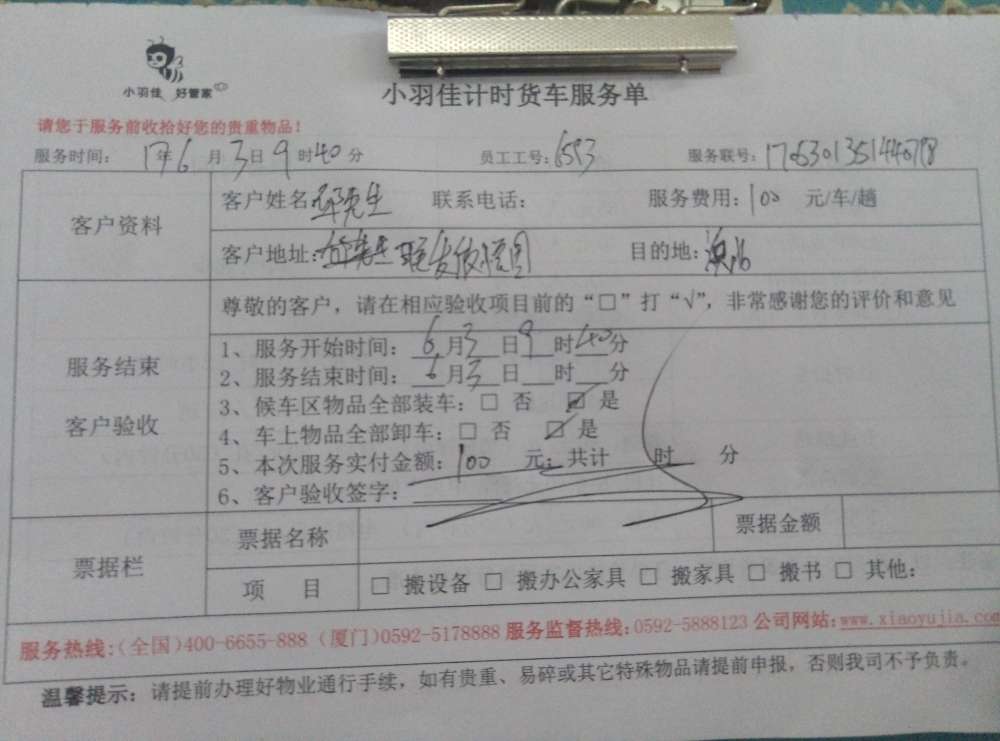 小羽佳 好管家
小羽佳计时货车服务单
请您于服务前收拾好您的贵重物品！
服务时间： 17年6月3日9时40分 员工工号：6593 服务联号：
客户资料
客户姓名 先生 联系电话： 服务费用：100 元/车/趟
客户地址： 目的地：
尊敬的客户，请在相应验收项目前的“□”打“√”，非常感谢您的评价和意见
服务结束
客户验收
1、服务开始时间：6月3日9时40分
2、服务结束时间：6月3日__时__分
3、候车区物品全部装车：□ 否 ☑ 是
4、车上物品全部卸车：□ 否 ☑ 是
5、本次服务实付金额：100 元，共计 时 分
6、客户验收签字：
票据栏
票据名称 票据金额
项 目 □ 搬设备 □ 搬办公家具 □ 搬家具 □ 搬书 □ 其他：
服务热线：（全国）400-6655-888（厦门）0592-5178888 服务监督热线：0592-5888123 公司网站：www.xiaoyujia.com
温馨提示：请提前办理好物业通行手续，如有贵重、易碎或其它特殊物品请提前申报，否则我司不予负责。